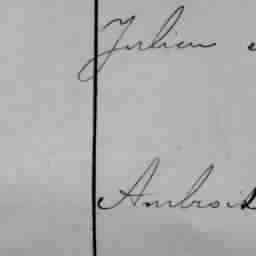 Julien
Ambrois